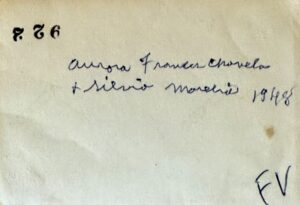 7.26
Aurora Frances Chavela
+ Silvia Morelia 1948
FV